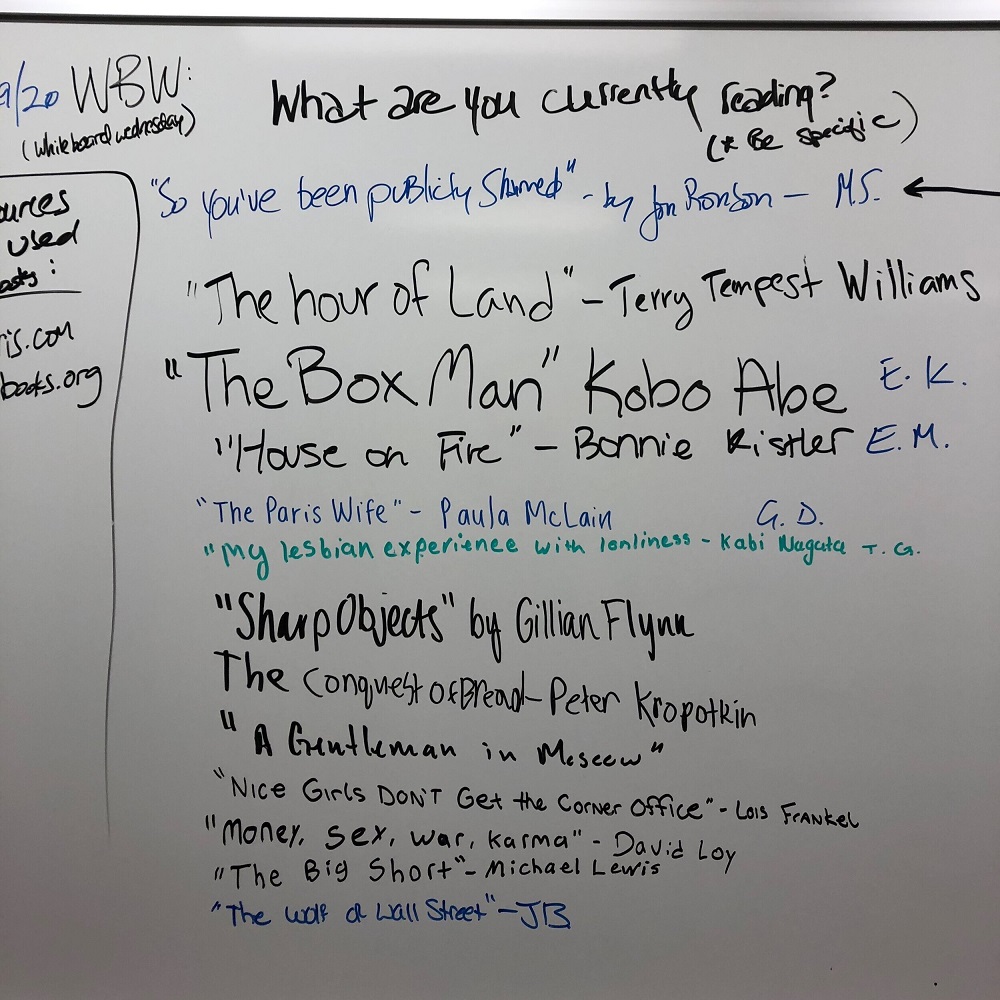 9/20 WBW:
(whiteboard wednesday)
What are you currently reading?
(* Be specific)
ources
used
books.org
"So you've been publicly Shamed" - by Jon Ronson - M.S.
"The hour of Land" - Terry Tempest Williams
"The Box Man" Kobo Abe E. K.
"House on Fire" - Bonnie Kistler E.M.
"The Paris Wife" - Paula McLain G. D.
"my lesbian experience with lonliness - Kabi Nagata T. G.
"Sharp Objects" by Gillian Flynn
The Conquest of Bread - Peter Kropotkin
"A Gentleman in Moscow"
"Nice Girls DON'T Get the Corner Office" - Lois Frankel
"Money, sex, war, karma" - David Loy
"The Big Short" - Michael Lewis
"The Wolf of Wall Street" - JB